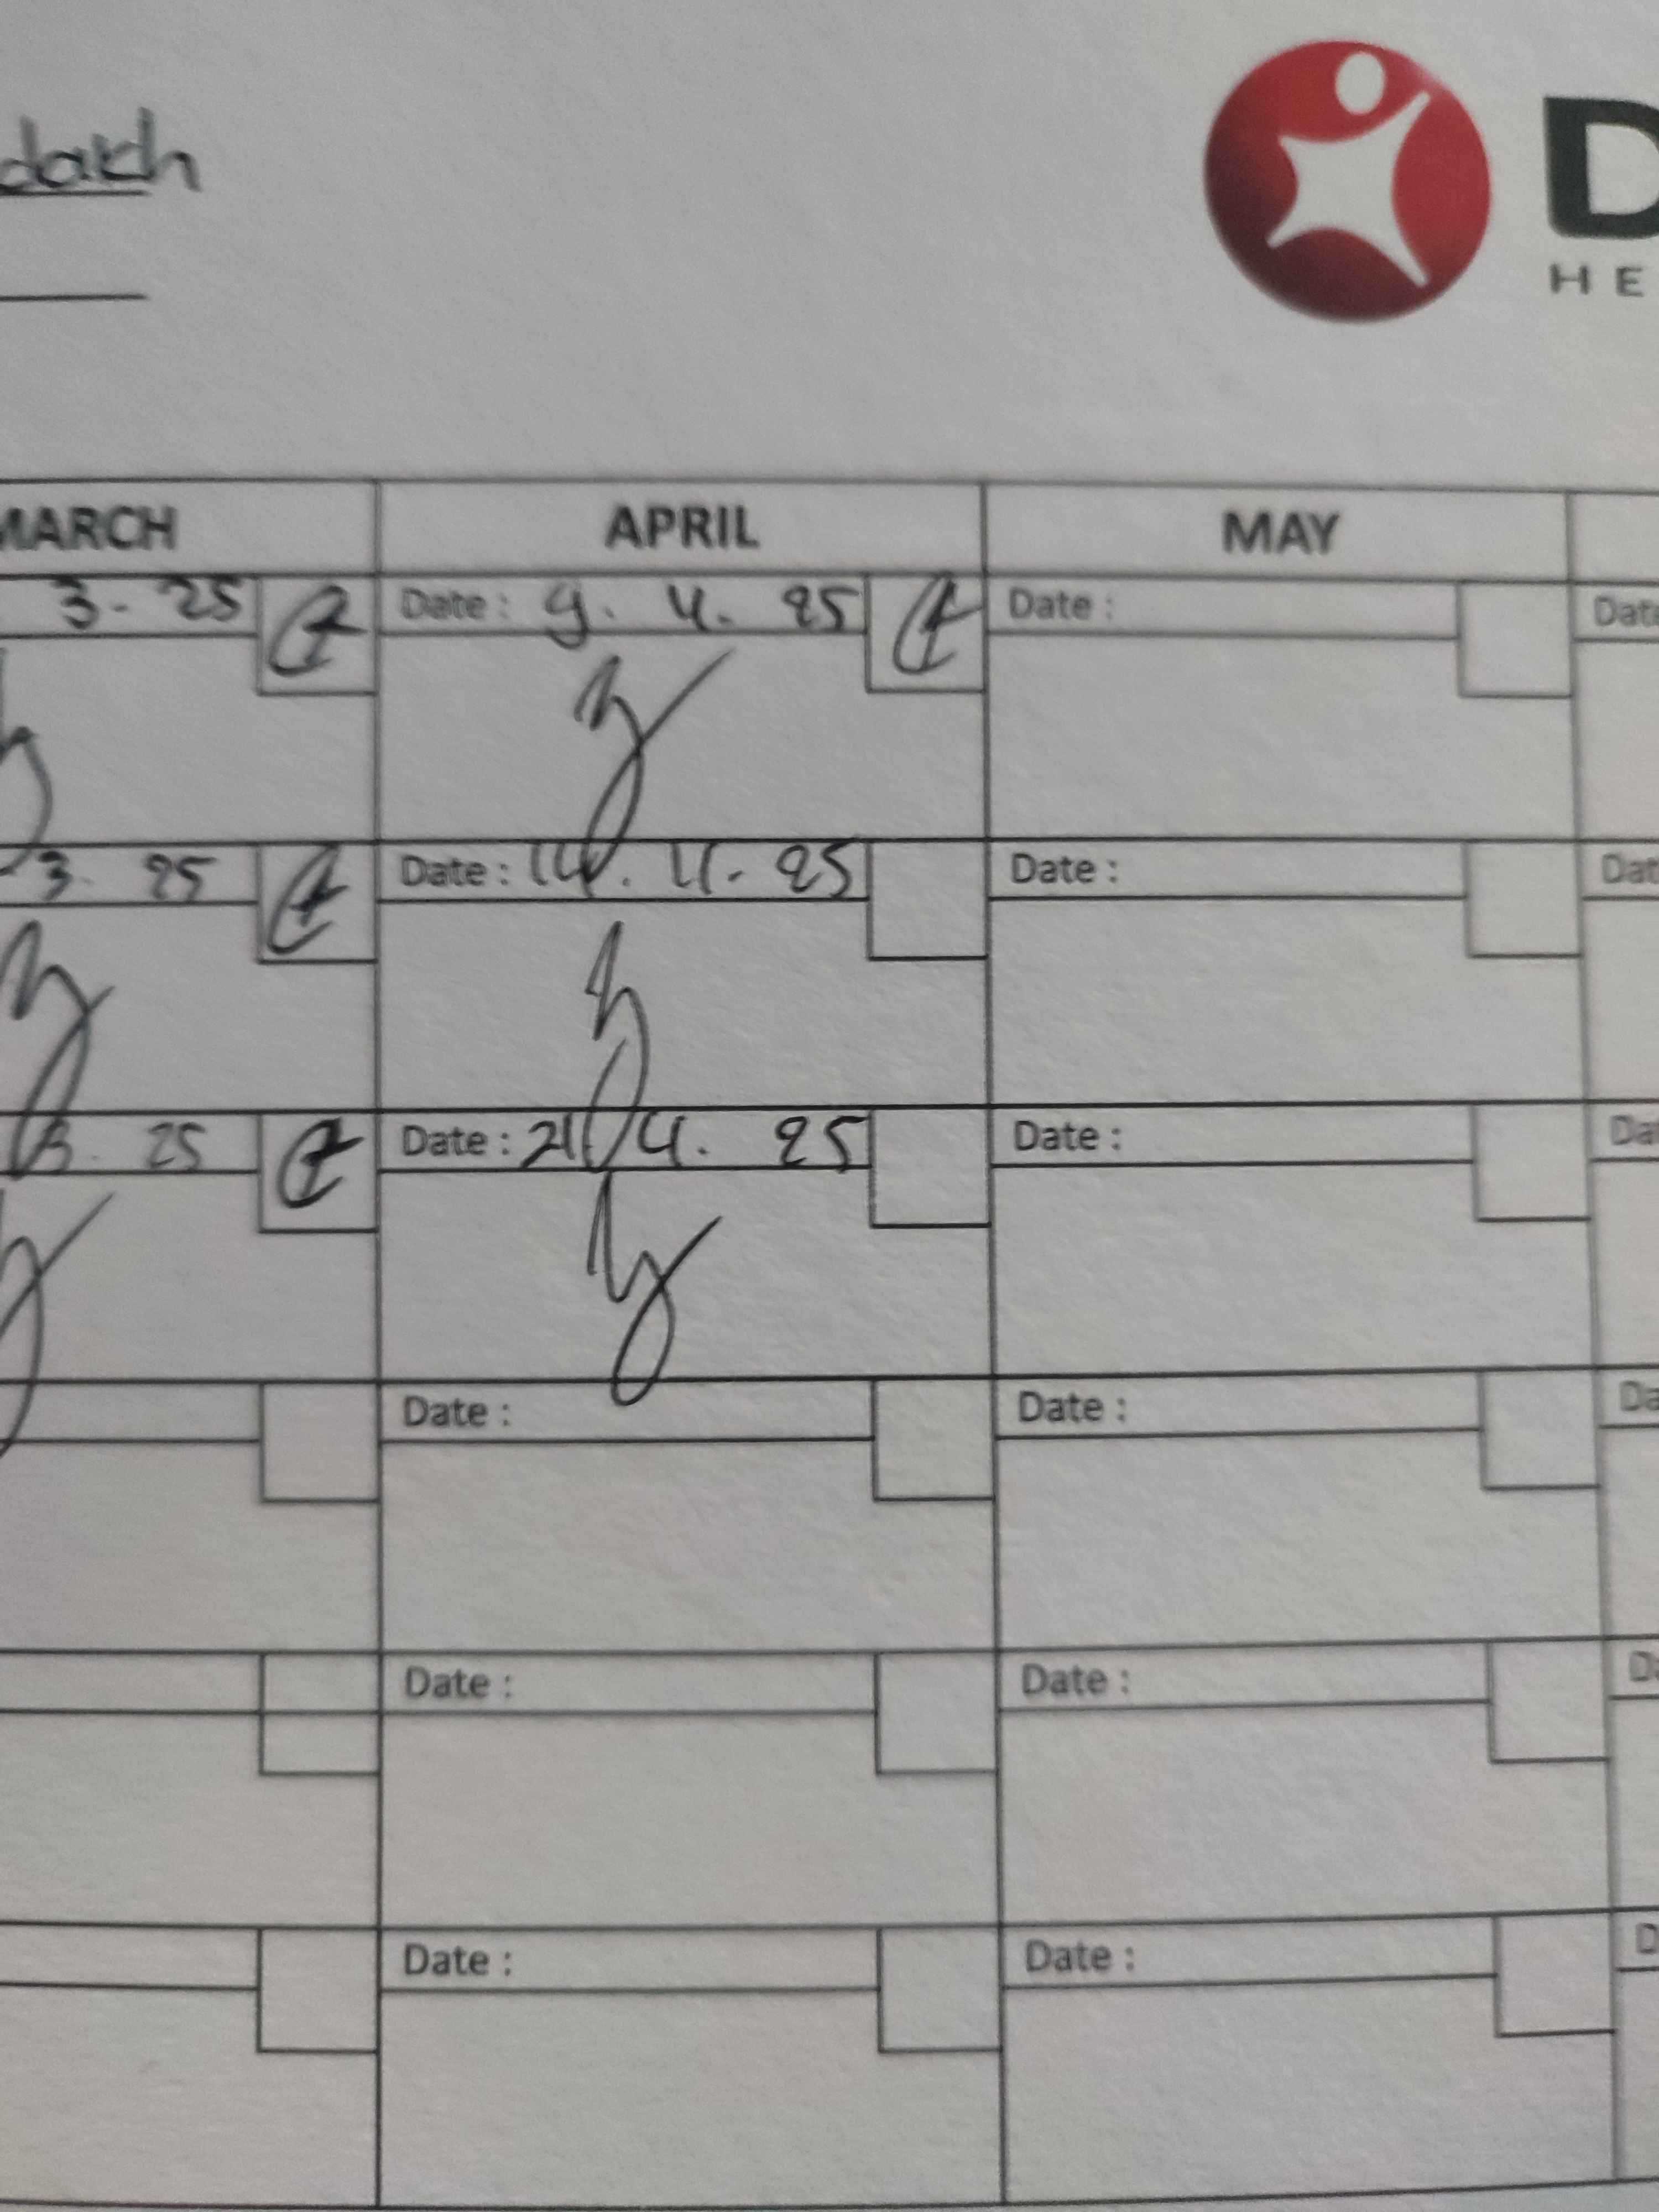 D
HE
MARCH APRIL MAY
3. 25 Date : 9. 4. 25 Date : Date
3. 25 Date : 14. 4. 25 Date : Dat
3. 25 Date : 21. 4. 25 Date : Da
Date : Date : Da
Date : Date : Da
Date : Date : D